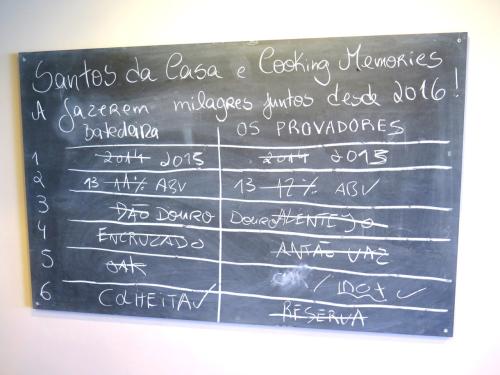 Santos da Casa e Cooking Memories
A fazerem milagres juntos desde 2016!
OS PROVADORES
1 2014 2015 2014 2015
2 13 11% ABV 13 12% ABV
3 DÃO DOURO DOURO ALENTEJO
4 ENCRUZADO ANTÃO VAZ
5 OAK OAK / INOX ✓
6 COLHEITA ✓ RESERVA